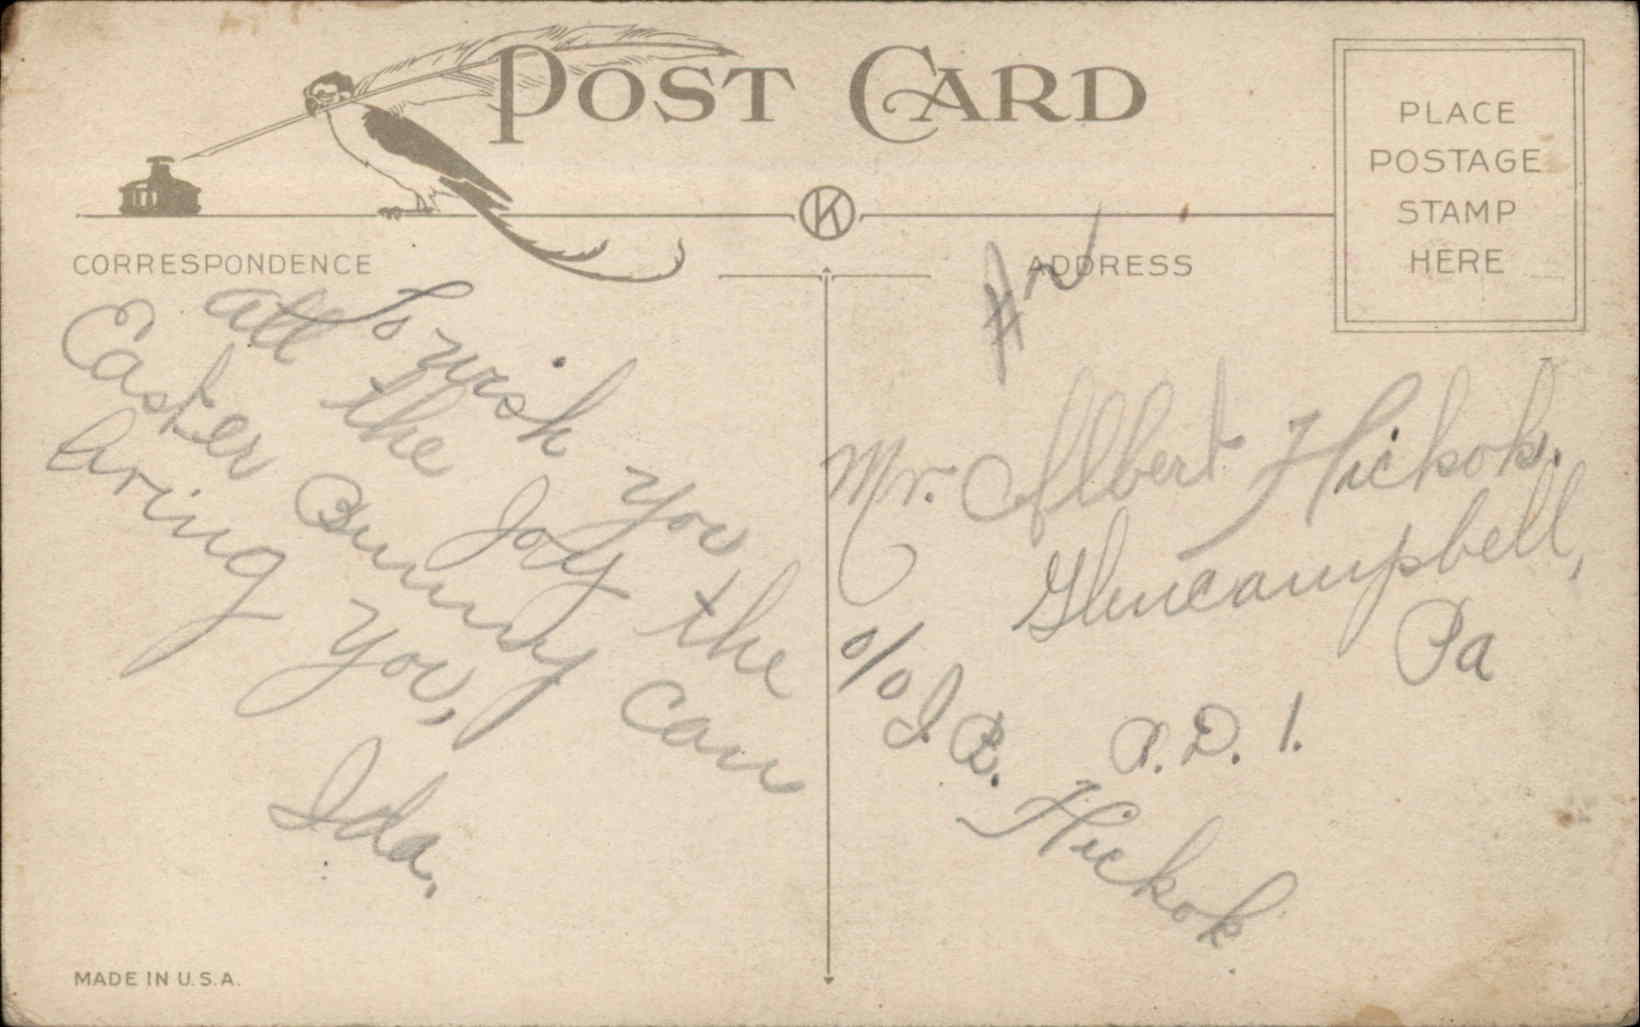 POST CARD
PLACE
POSTAGE
STAMP
HERE
K
CORRESPONDENCE
ADDRESS
To wish you
all the joy the
Easter Bunny can
bring you,
Ida.
Mr. Albert Hickok.
Glencampbell,
Pa
R.D. 1.
c/o J. B.
Hickok
MADE IN U.S.A.